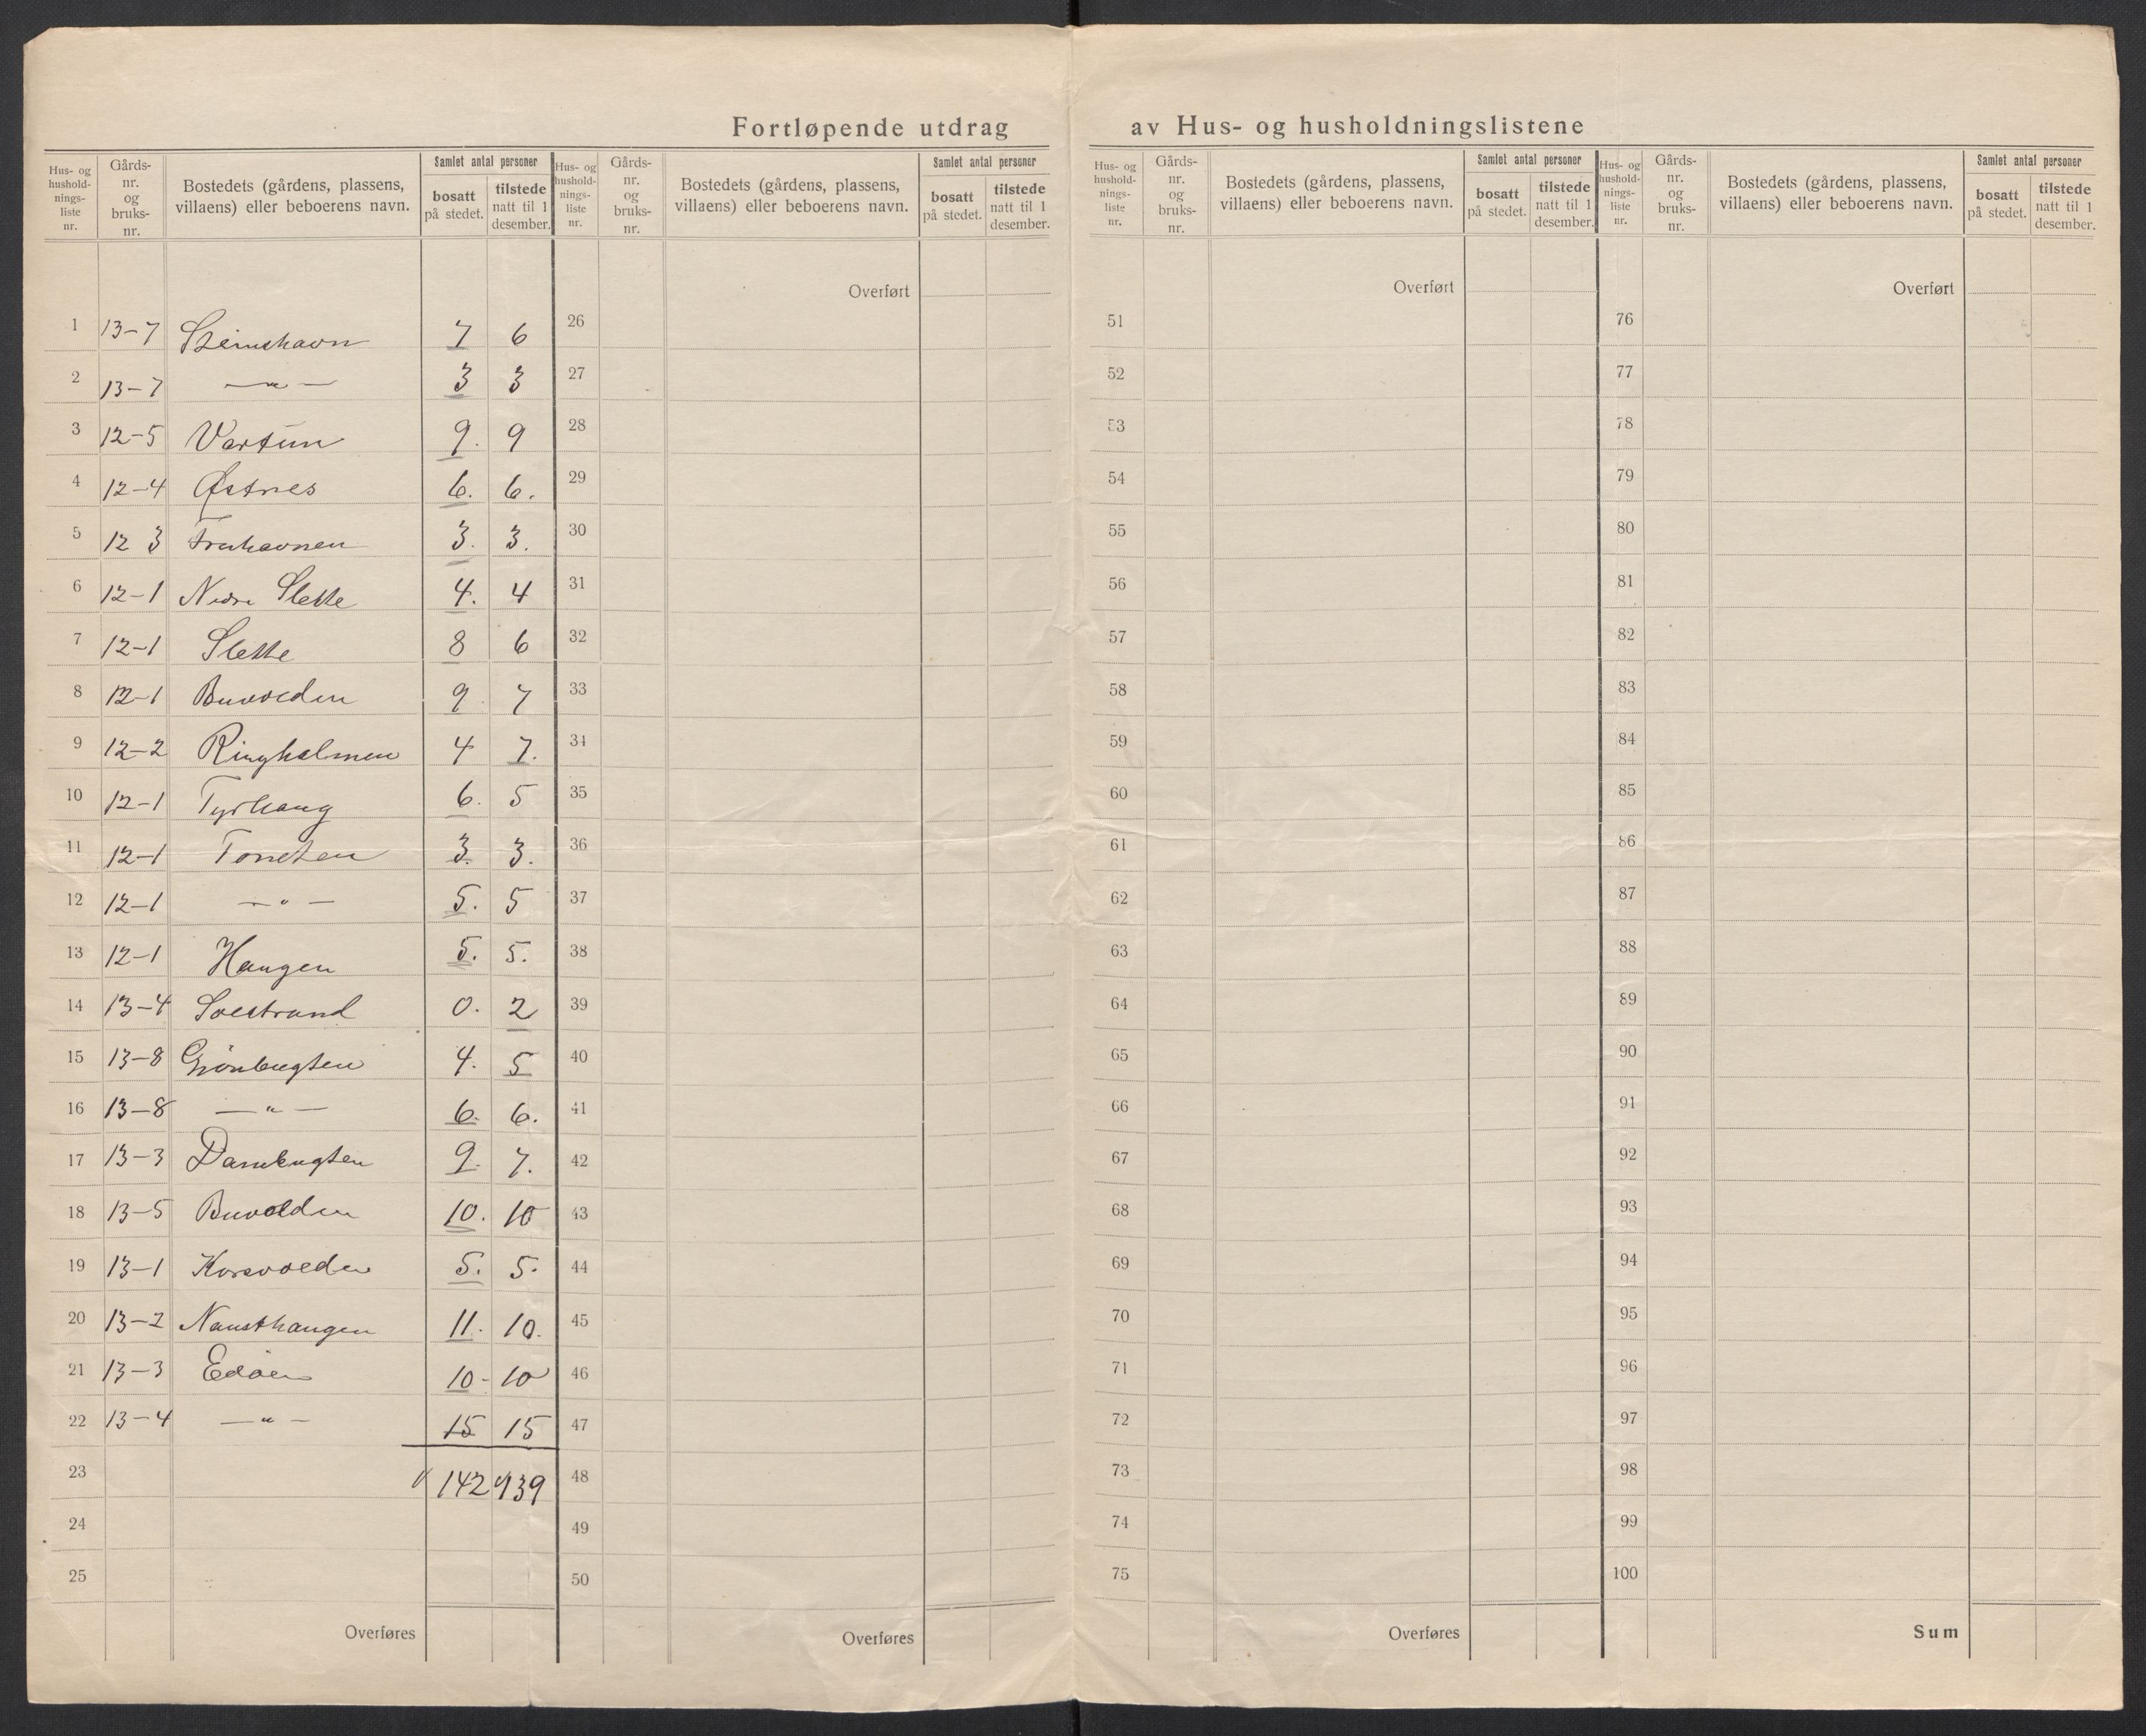 Fortløpende utdrag av Hus- og husholdningslistene
Hus- og hushold-nings-liste nr. Gårds-nr. og bruks-nr. Bostedets (gårdens, plassens, villaens) eller beboerens navn. Samlet antal personer bosatt på stedet. tilstede natt til 1 desember.
1 13-7 Steinshavn 7 6
2 13-7 —"— 3 3
3 12-5 Vartun 9. 9
4 12-4 Østnes 6. 6.
5 12 3 3. 3.
6 12-1 Nedre Slette 4. 4
7 12-1 Slette 8 6
8 12-1 Buvolden 9 7
9 12-2 Ringholmen 4 7.
10 12-1 Tyrhaug 6. 5
11 12-1 3. 3.
12 12-1 —"— 5. 5
13 12-1 Haugen 5. 5.
14 13-4 Solstrand 0. 2
15 13-8 Grönbugten 4. 5
16 13-8 —"— 6. 6.
17 13-3 Dambugten 9. 7.
18 13-5 Buvolden 10. 10
19 13-1 Korsvolden 5. 5.
20 13-2 Nausthaugen 11. 10.
21 13-3 Edöen 10- 10
22 13-4 —"— 15 15
23 142 139
24
25
Overføres
Hus- og hushold-nings-liste nr. Gårds-nr. og bruks-nr. Bostedets (gårdens, plassens, villaens) eller beboerens navn. Samlet antal personer bosatt på stedet. tilstede natt til 1 desember.
Overført
26
27
28
29
30
31
32
33
34
35
36
37
38
39
40
41
42
43
44
45
46
47
48
49
50
Overføres
Hus- og hushold-nings-liste nr. Gårds-nr. og bruks-nr. Bostedets (gårdens, plassens, villaens) eller beboerens navn. Samlet antal personer bosatt på stedet. tilstede natt til 1 desember.
Overført
51
52
53
54
55
56
57
58
59
60
61
62
63
64
65
66
67
68
69
70
71
72
73
74
75
Overføres
Hus- og hushold-nings-liste nr. Gårds-nr. og bruks-nr. Bostedets (gårdens, plassens, villaens) eller beboerens navn. Samlet antal personer bosatt på stedet. tilstede natt til 1 desember.
Overført
76
77
78
79
80
81
82
83
84
85
86
87
88
89
90
91
92
93
94
95
96
97
98
99
100
Sum